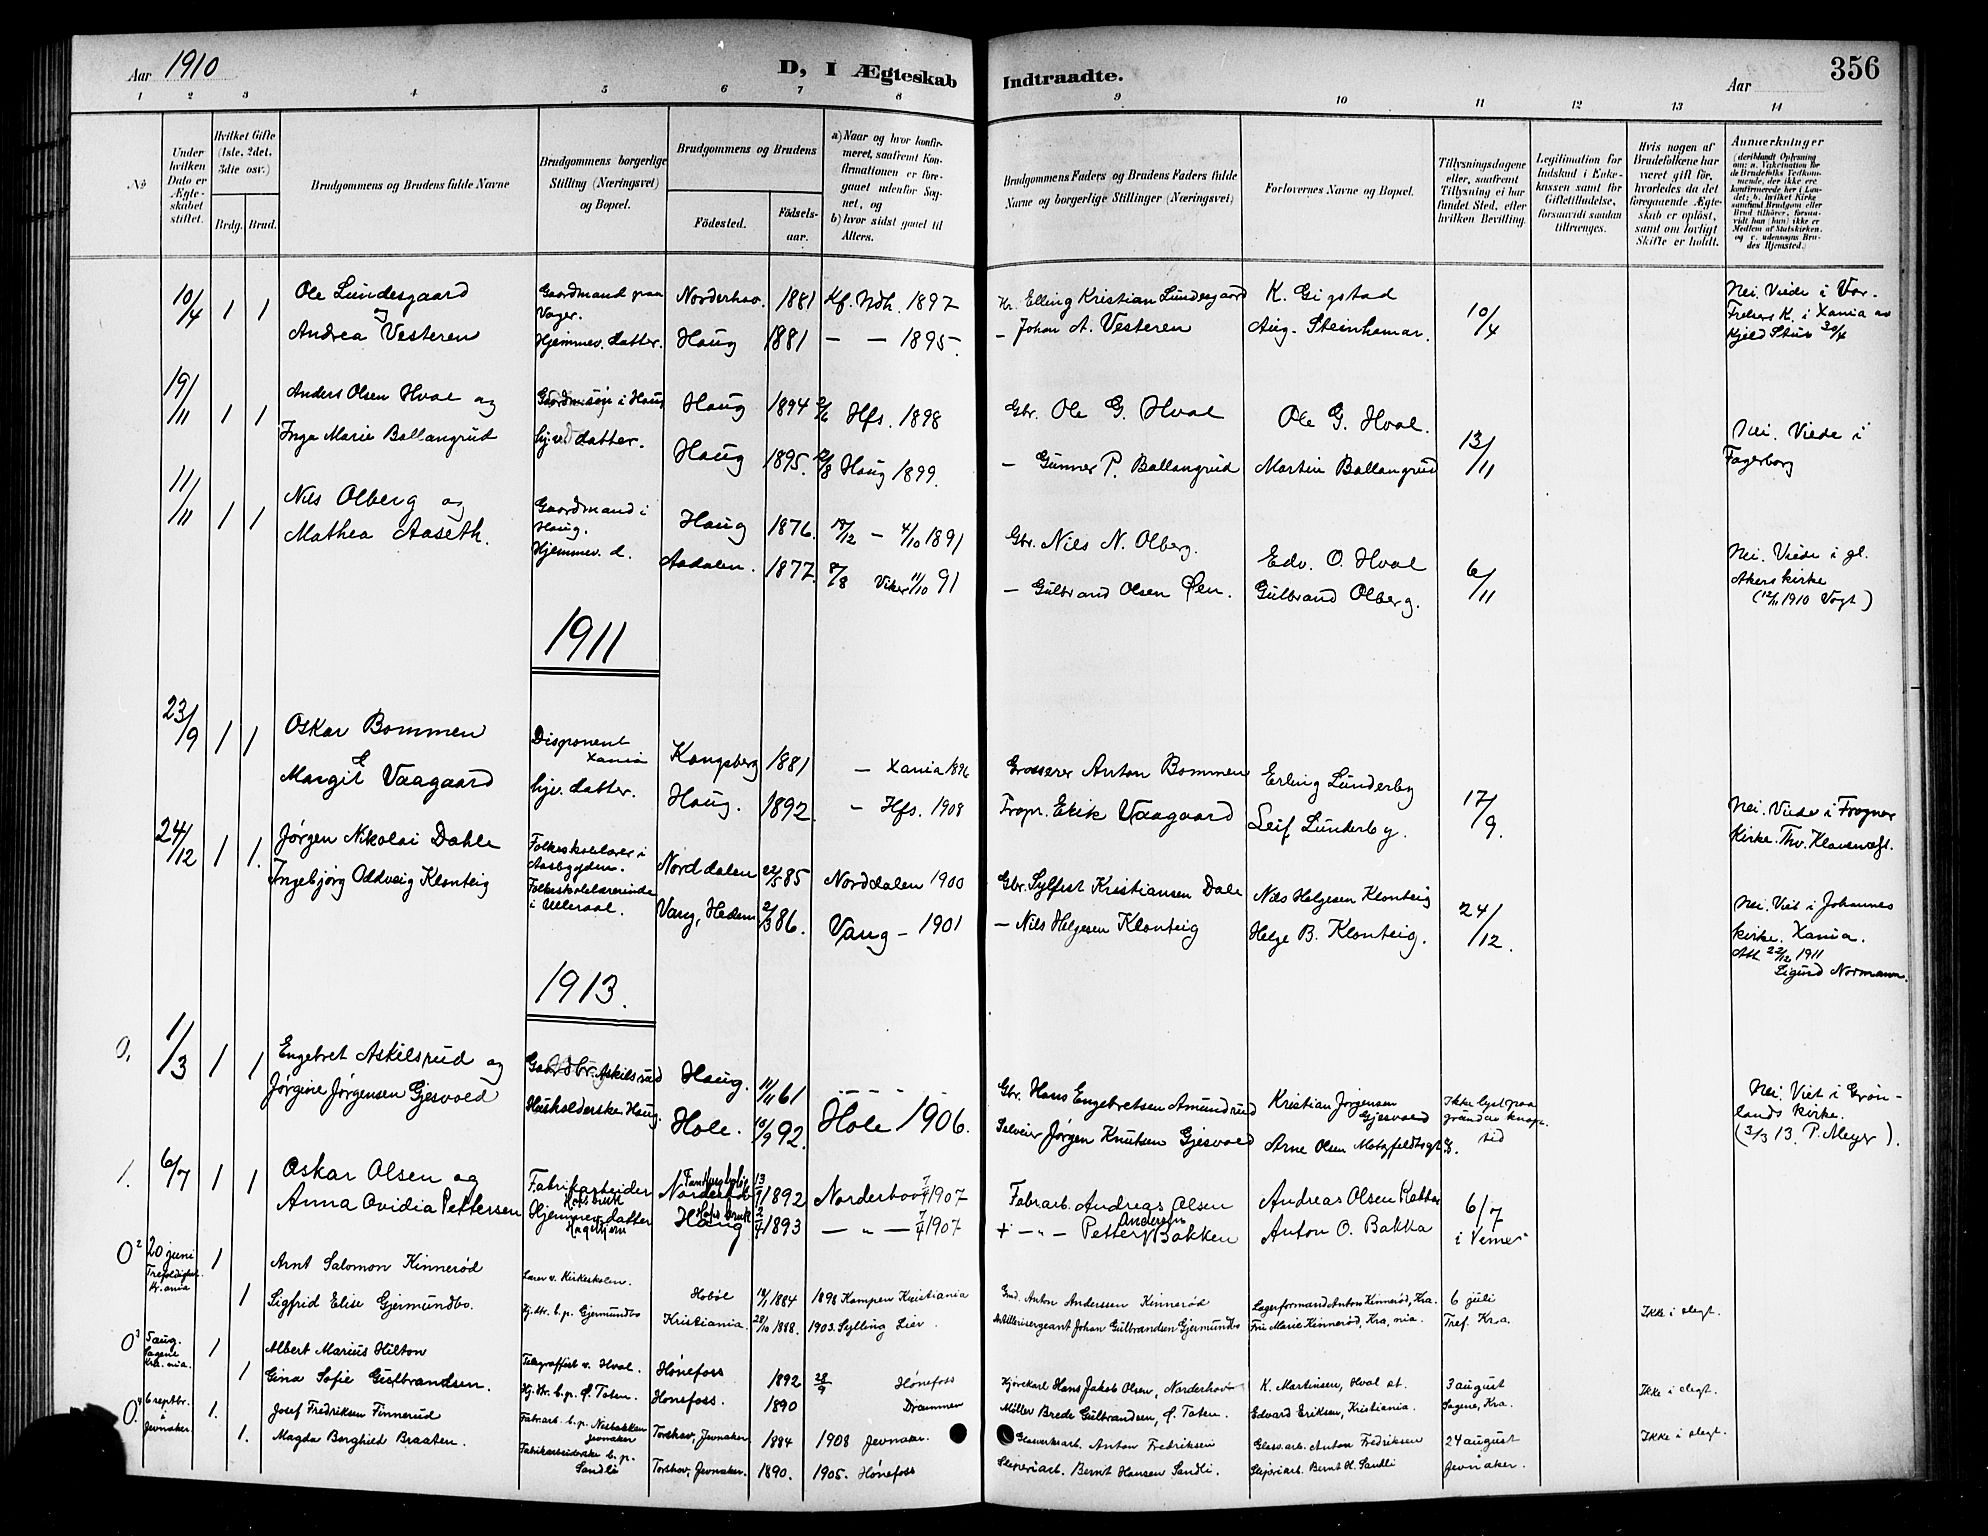 Aar 1910
D, I Ægteskab Indtraadte.
Aar 356
1 2 3 4 5 6 7 8 9 10 11 12 13 14
No
Under hvilken Dato er Ægteskabet stiftet.
Hvilket Gifte (1ste, 2det, 3die osv.)
Brdg. Brud.
Brudgommens og Brudens fulde Navne
Brudgommens borgerlige Stilling (Næringsvei) og Bopæl.
Brudgommens og Brudens
Födested.
Födsels-aar.
a) Naar og hvor konfirmeret, saafremt Konfirmationen er foregaaet udenfor Sognet, og
b) hvor sidst gaaet til Alters.
Brudgommens Faders og Brudens Faders fulde Navne og borgerlige Stillinger (Næringsvei)
Forlovernes Navne og Bopæl.
Tillysningsdagene eller, saafremt Tillysning ei har fundet Sted, efter hvilken Bevilling.
Legitimation for Indskud i Enkekassen samt for Giftetilladelse, forsaavidt saadan tiltrænges.
Hvis nogen af Brudefolkene har været gift før, hvorledes da det foregaaende Ægteskab er oplöst, samt om lovligt Skifte er holdt.
Anmærkninger
10/4 1 1 Ole Lundesgaard Gaardmand paa Vager. Norderhov. 1881 Kf. Ndh. 1897 Kr. Elling Kristian Lundesgaard K. Gigstad 10/4 Nei. Viede i Vor Frelsers K. i Xania av Kjeld Stub 30/4
og
Andrea Vesteren Hjemmev. datter. Haug 1881 — — 1895. — Johan A. Vesteren Aug. Steinhamar.
19/11 1 1 Anders Olsen Hval og Haug 1894 Hfs. 1898 Gbr. Ole G. Hval Ole G. Hval. 13/11 Nei. Viede i Fagerborg
Inga Marie Ballangrud hjv. datter. Haug 1895. Haug 1899. — Gunner P. Ballangrud Martin Ballangrud
11/11 1 1 Nils Olberg og Gaardmand i Haug. Haug 1876. 17/12 — 4/10 1891 Gbr. Nils N. Olberg. Edv. O. Hval 6/11 Nei. Viede i gl. Akers kirke (12/11 1910 Vogt)
Mathea Aaseth. Hjemmev. d. Aadalen. 1877. 8/8 Viker 11/10 91 — Gulbrand Olsen Øen. Gulbrand Olberg.
1911
23/9 1 1 Oskar Bommen Disponent Xania Kongsberg 1881 — Xania 1896 Grosserer Anton Bommen Erling Lunderby 17/9. Nei. Viede i Frogner Kirke. Thv. Klaveness.
&
Margit Vaagaard hjv. datter. Haug. 1892. — Hfs. 1908 Propr. Erik Vaagaard Leif Lunderby.
24/12 1 1. Jørgen Nikolai Dahle Folkeskolelærer i Aasbygden. Norddalen 22/5 85 Norddalen 1900 Gbr. Sylfest Kristiansen Dale Nils Helgesen Klonteig 24/12. Nei. Viet i Johannes kirke. Xania. Att. 22/12 1911 Sigurd Normann
Ingebjørg Oddveig Klonteig Folkeskolelærerinde i Ulleraal. Vang, Hedem 2/3 86. Vang — 1901 — Nils Helgesen Klonteig Helge B. Klonteig.
1913.
0, 1/3 1 1 Engebret Askilsrud og Gaardbr. Askilsrud Haug. 11/11 61 - - - - Gbr. Hans Engebretsen Amundrud Kristian Jørgensen Gjesvold Ikke lyst paa grund av knap tid Nei. Viet i Grønlands kirke. (3/3 13. P. Meyer).
Jørgine Jørgensen Gjesvold Husholderske Haug. Hole. 10/9 92. Hole 1906. Selveier Jørgen Knutsen Gjesvold Arne Olsen Motzfeldtsgt 8.
1. 6/7 1 1 Oskar Olsen og Fabrikarbeider Hofsbruk Norderhov 13/1 1892 Norderhov 7/4 1907 Fabarb. Andreas Olsen Andreas Olsen 6/7 i Vemes
Anna Ovidia Pettersen Hjemmev. datter Hofsbruk Haug 2/7 1893 — " — 7/4 1907 + — " — Petter Andersen Bakken Anton O. Bakka
0² 20 juni Trefoldighet Kr.ania 1 Arnt Salomon Kinnerød Lærer v. Kirkeskolen. Hobøl 12/1 1884 1898 Kampen Kristiania Gmd. Anton Anderssen Kinnerød Lagerformand Anton Kinnerød, Kra. 6 juli Tref. Kra. Ikke i slegt.
1 Sigfrid Elise Gjermundbo. Hj.dtr. b.p. Gjermundbo Kristiania. 28/10 1888. 1903. Sylling Lier. Artillerisergeant Johan Gulbrandsen Gjermundbo Fru Marie Kinnerød, Kra, nia.
0³ 5 aug. Sagene Kra. nia. 1 Albert Marius Hilton Telegraffist v. Hval. Hönefoss 1892 28/9 Hönefoss Kjørekarl Hans Jakob Olsen, Norderhov K. Martinsen, Hval st. 3 august Sagene, Kra. Ikke i slegt.
1 Gina Sofie Gulbrandsen. Hj.dtr. b.p. Ø. Toten. Honefoss. 1890 Drammen Möller Brede Gulbrandsen, Ø. Toten. Edvard Eriksen, Kristiania.
0.⁴ 6 septbr. i Jevnaker 1. Josef Fredriksen Finnerud Fabr.arb. b.p. Nesbakken Jevnaker Torshov, Jevnaker 1884 1908 Jevnaker. Glasverksarb. Anton Fredriksen Glasv.arb. Anton Fredriksen 24 august Jevnaker. Ikke i slegt.
1. Magda Borghild Braaten. Fabrikarbeiderske b.p. Sandli Torshov, Jevnaker. 1890. 1905. Hönefoss Sliperiarb. Bernt Hansen Sandli. Sliperiarb. Bernt H. Sandli